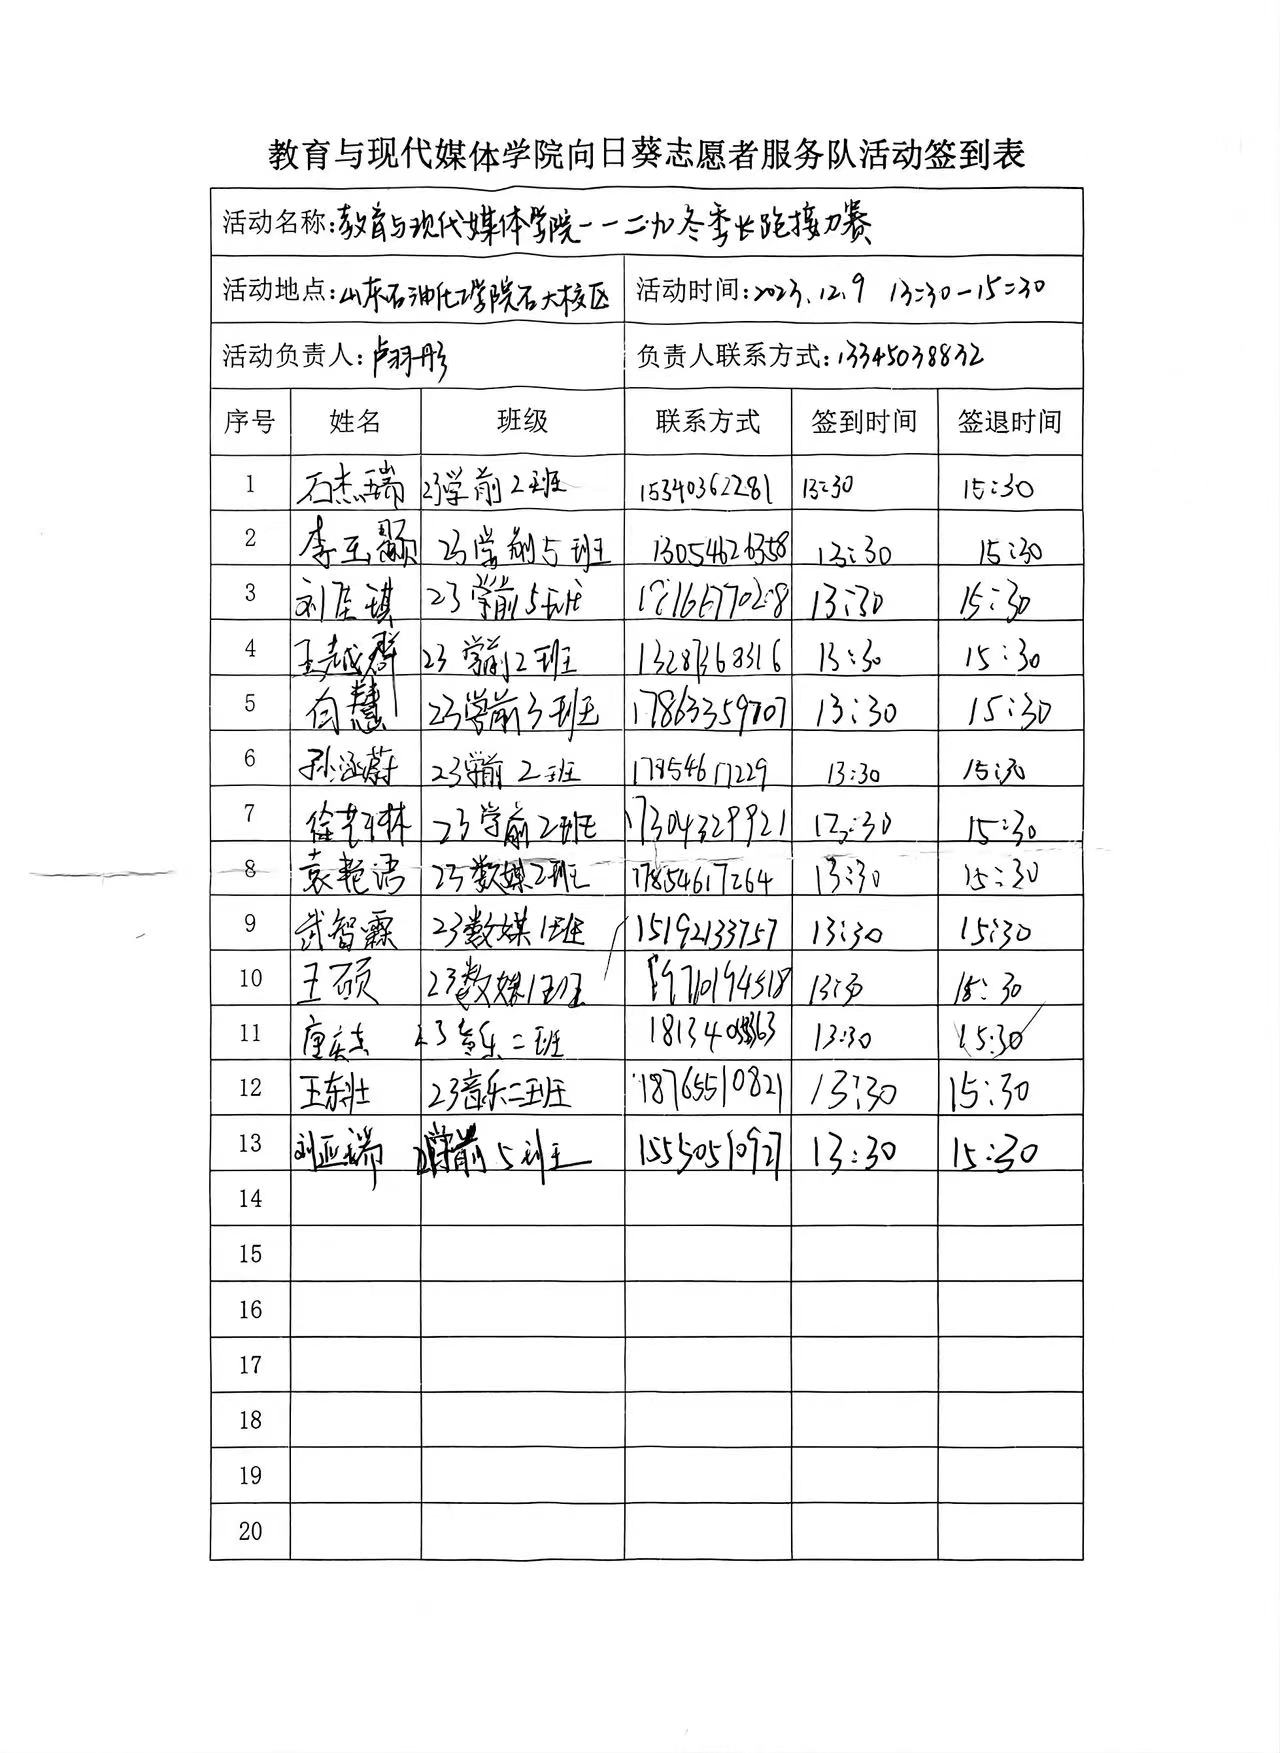 教育与现代媒体学院向日葵志愿者服务队活动签到表
活动名称:教育与现代媒体学院一一二九冬季长跑接力赛
活动地点:山东石油化工学院石大校区 活动时间:2023.12.9 13:30-15:30
活动负责人:卢羽彤 负责人联系方式:13345038832
序号 姓名 班级 联系方式 签到时间 签退时间
1 石杰瑞 23学前2班 15340362281 13:30 15:30
2 李玉颢 23学前5班 13054626358 13:30 15:30
3 23学前5班 13:30 15:30
4 王越群 23学前2班 13287368316 13:30 15:30
5 白慧 23学前3班 17863359707 13:30 15:30
6 孙涵蔚 23学前2班 17854617229 13:30 15:30
7 23学前2班 17304329921 13:30 15:30
8 袁艳语 23数媒2班 17854617264 13:30 15:30
9 武智霖 23数媒1班 15192133757 13:30 15:30
10 王硕 23数媒1班 13:30 15:30
11 23音乐二班 13:30 15:30
12 王东壮 23音乐二班 18765510821 13:30 15:30
13 刘亚瑞 23学前5班 15550510927 13:30 15:30
14
15
16
17
18
19
20